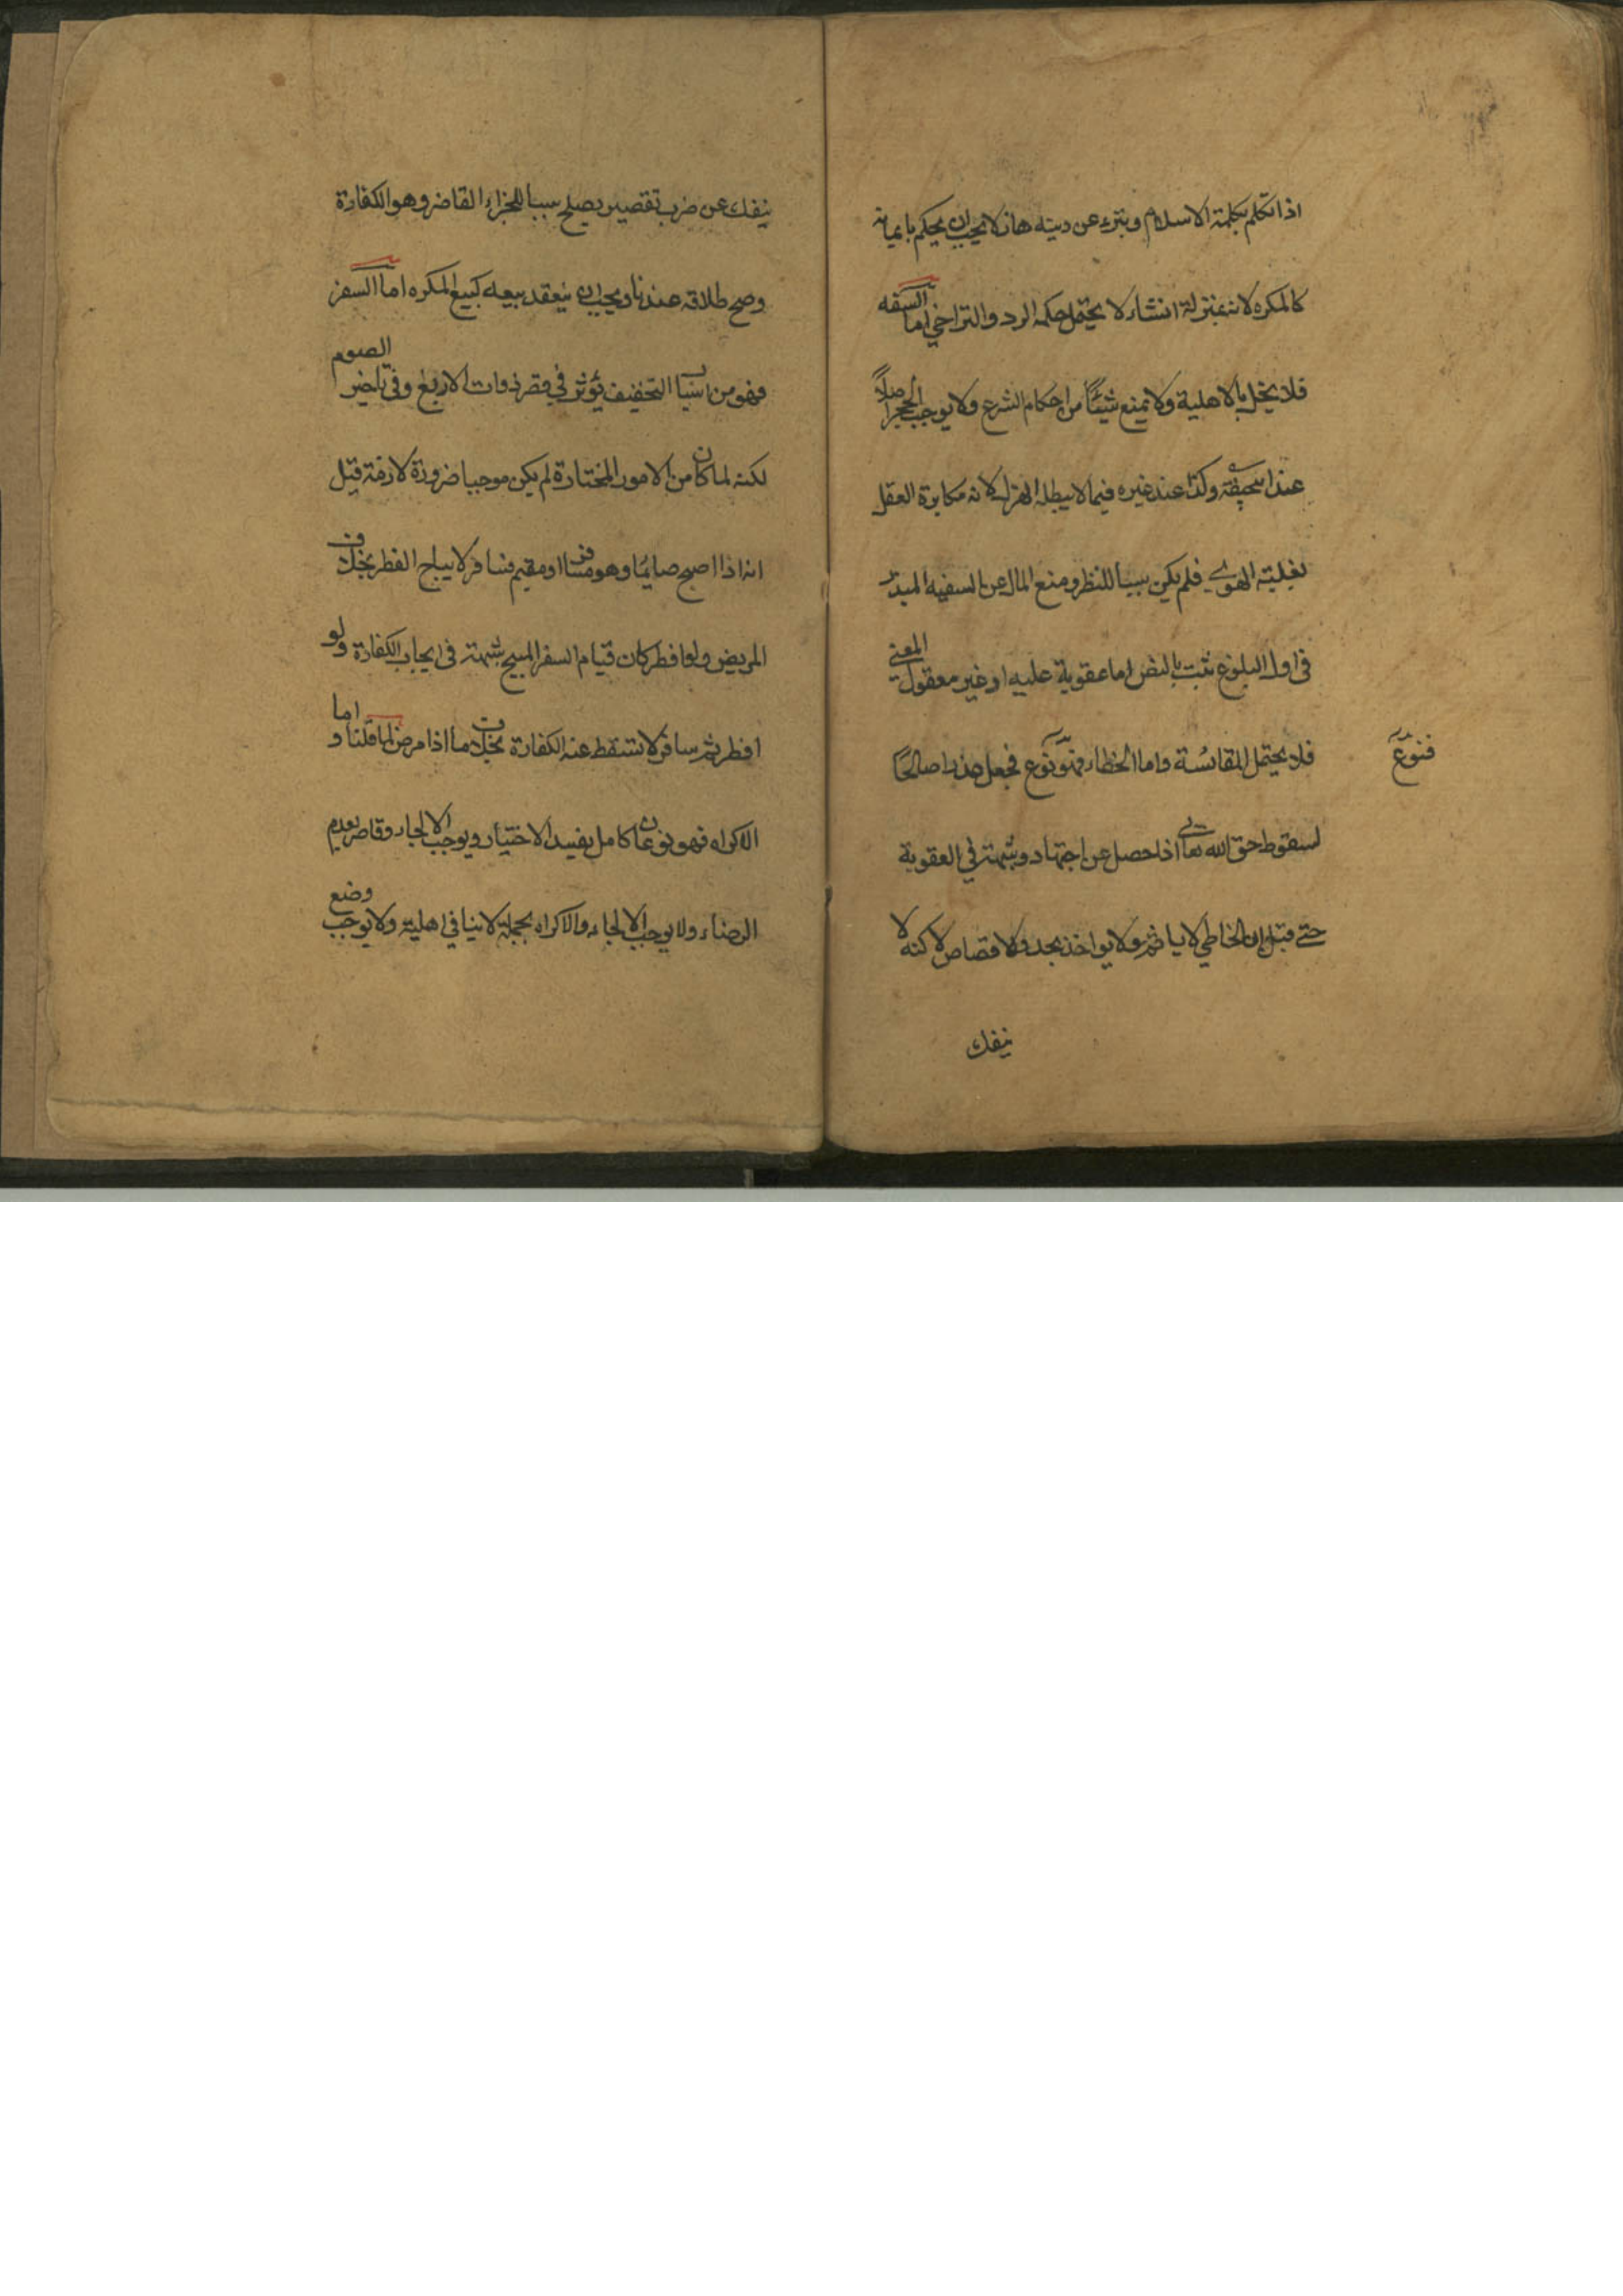 اذا تكلم بكلمة الاسلام وتبرء عن دينه هازلا يجب ان يحكم بايمانه
كالمكره لانه بمنزلة انشاء لا يحتمل حكمه الرد والتراخي اما السفه
فلا يخل بالاهلية ولا يمنع شيئًا من احكام الشرع ولا يوجب الحجر اصلاً
عند ابيحنيفة وكذا عند غيره فيما لا يبطله الهزل لانه مكابرة العقل
بغلبة الهوى فلم يكن سببا للنظر ومنع المال عن السفيه المبذر
في اول البلوغ ثبت بالنص اما عقوبة عليه او غير معقول المعنى
فلا يحتمل المقائسة واما الخطاء فهو نوع جعل عذرا صالحًا
فنوع
لسقوط حق الله تعالى اذا حصل عن اجتهاد وشبهة في العقوبة
حتى قيل ان الخاطي لا ياثم ولا يواخذ بحد ولا قصاص لاكنه لا
ينفك
ينفك عن ضرب تقصير يصلح سببا للجزاء القاصر وهو الكفارة
وصح طلاقه عندنا ويجب ان ينعقد بيعه كبيع المكره اما السفر
فهو من اسباب التخفيف يؤثر في قصر ذوات الاربع وفي تاخير الصوم
لكنه لما كان من الامور المختارة لم يكن موجبا ضرورة لازمة قيل
انه اذا اصبح صايمًا وهو مسافر او مقيم فسافر لا يباح الفطر بخلاف
المريض ولو افطر كان قيام السفر المبيح شبهة في ايجاب الكفارة ولو
افطر ثم سافر لا تسقط عنه الكفارة بخلاف ما اذا مرض لما قلنا و اما
الاكراه فهو نوعان كامل يفسد الاختيار ويوجب الالجاء وقاصر يعدم
الرضاء ولا يوجب الالجاء والاكراه بجملته لا ينافي اهلية ولا يوجب وضع